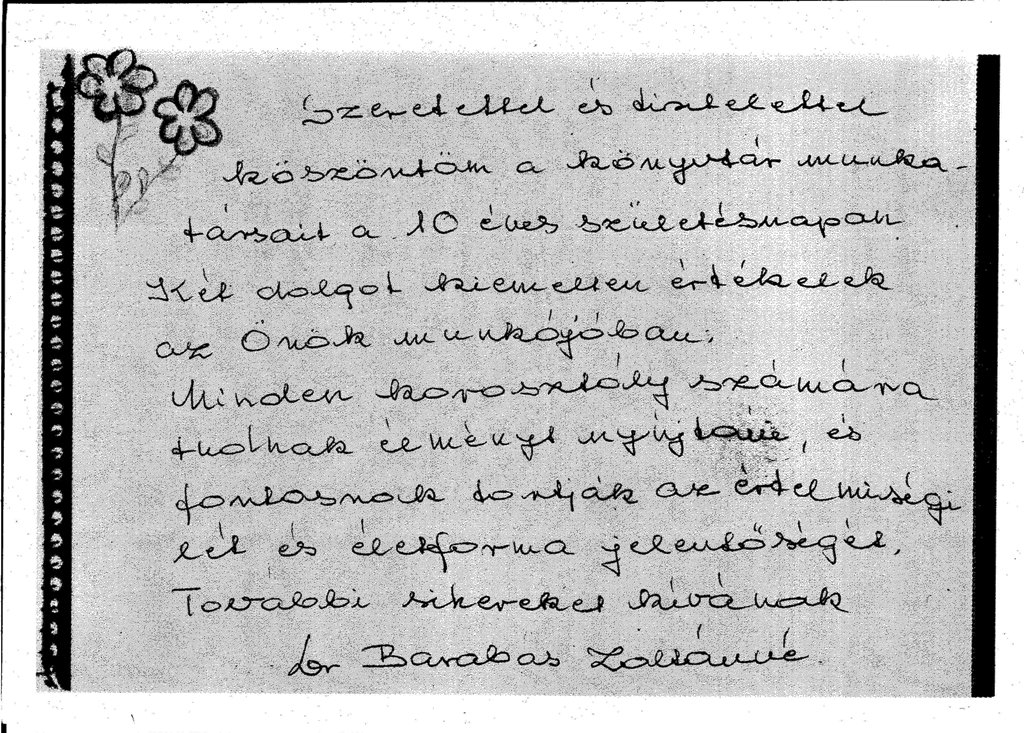 Szeretettel és tisztelettel
köszöntöm a könyvtár munka-
társait a 10 éves születésnapon
Két dolgot kiemelten értékelek
az Önök munkájában:
Minden korosztály számára
tudnak élményt nyújtani, és
fontosnak tartják az értelmiségi
lét és életforma jelentőségét.
További sikereket kívánok
dr Barabás Zoltánné